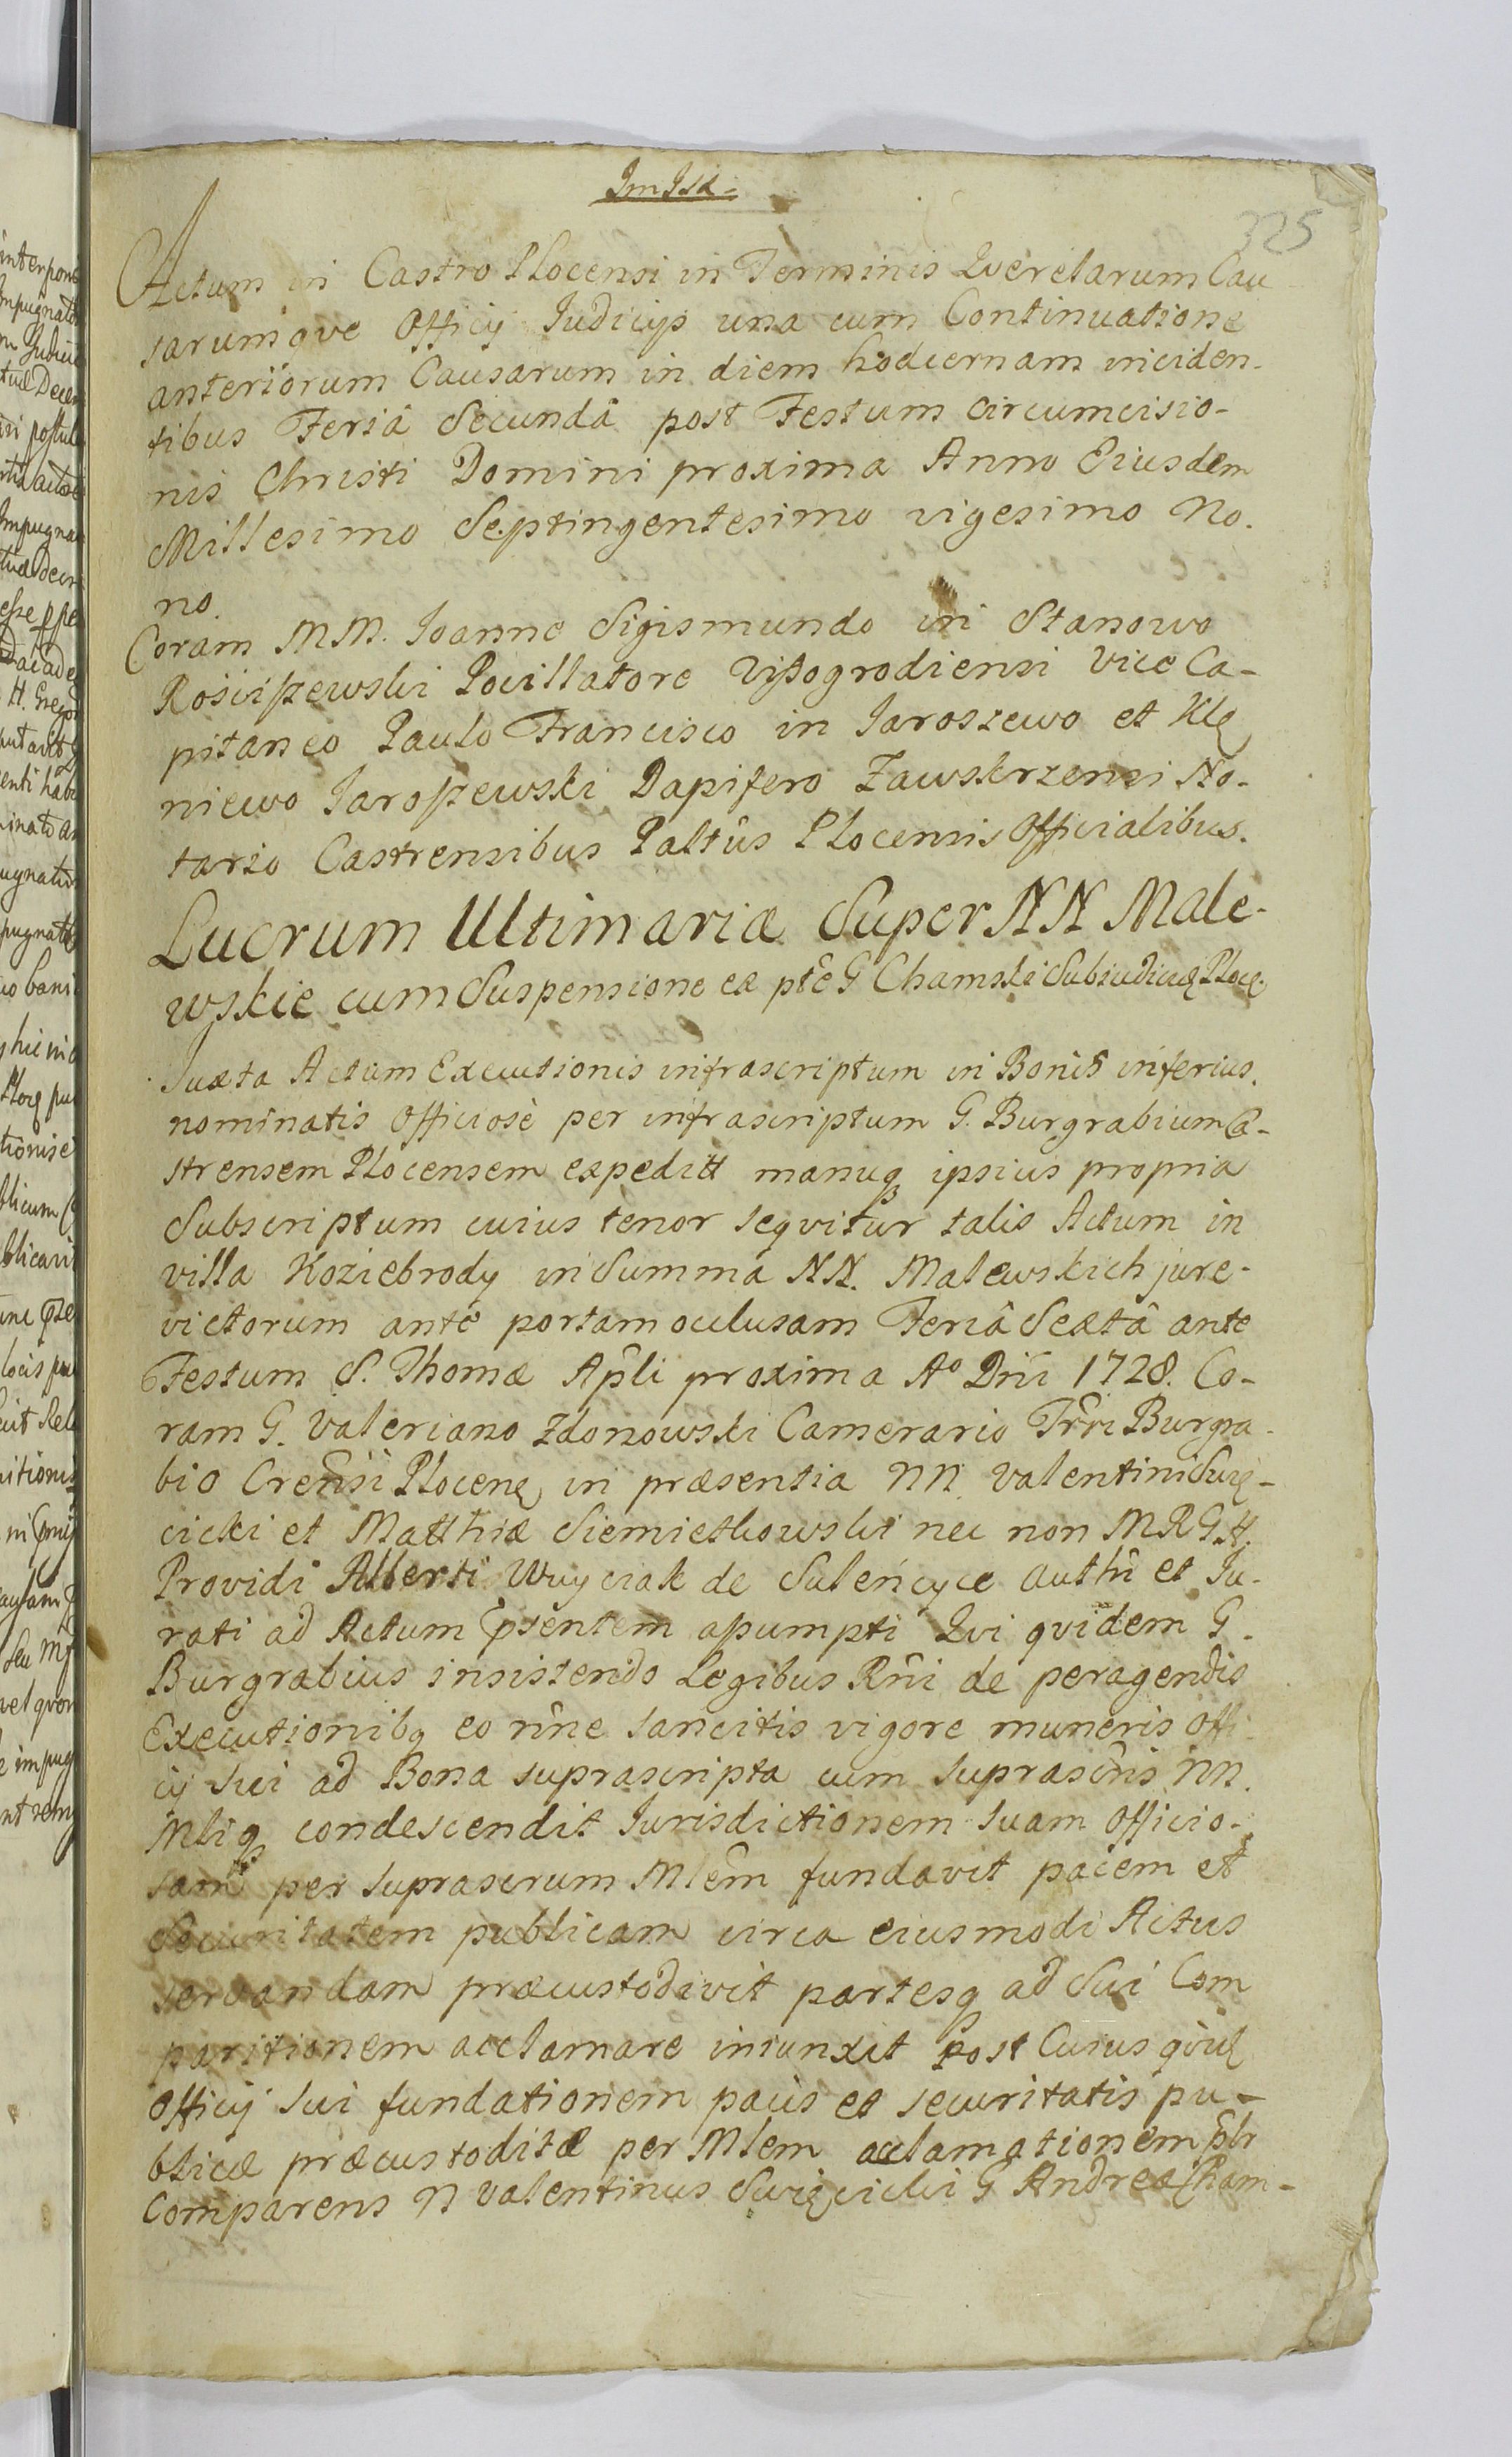 325
Actum in Castro Plocensi in Terminis Qverelarum Cau
sarumqve Officij Iudicijs una cum Continuatione
anteriorum Causarum in diem hodiernam inciden-
tibus Feriâ Secundâ post Festum Circumcisio-
nis Christi Domini proxima Anno Eiusdem
Millesimo Septingentesimo vigesimo No-
no.
Coram MM. Ioanne Sigismundo in Stanowo
Rosciszewski Pocillatore Viszogrodiensi Vice Ca-
pitaneo Paulo Francisco in Jaroszewo et Klę
niewo Jaroszewski Dapifero Zawskrzensi No-
tario Castrensibus Paltûs Plocensis Officialibus.
Lucrum Ultimariæ Super NN Male-
wskie cum Suspensione ex pte G Chamski Subiudicis Ploc.
Iuxta Actum Executionis infrascriptum in Bonis inferius
nominatis Officiosè per infrascriptum G. Burgrabium Ca-
strensem Plocensem expeditt manuq ipsius propria
Subscriptum cuius tenor seqvitur talis Actum in
villa Koziebrody in Summa NN. Malewskich jure-
victorum antè portam oclusam Feriâ Sextâ ante
Festum S. Thomæ Apli proxima Ao Dni 1728. Co-
ram G. Valeriano Zdonowski Camerario Trri Burgra-
bio Crensi Plocenę in præsentia NN Valentini Swię-
cicki et Matthiæ Siemiethowski nec non MRGH.
Providi Alberti Wuyciak de Suleńcyce authi et Iu-
rati ad Actum psentem aszumpti Qvi qvidem G.
Burgrabius insistendo Legibus Rni de peragendis
Executionibq eo nne sancitis vigore muneris Offi
cij Sui ad Bona suprascripta cum suprascris NN.
Mliq condescendit Iurisdictionem suam Officio-
sam per suprascrum Mlem fundavit pacem et
Securitatem publicam circa eiusmodi Actus
servandam præcustodivit partesq ad Sui Com
paritionem acclamare iniunxit Post Cuius qvid
Officij Sui fundationem pacis et securitatis pu-
blicæ præcustoditæ per Mlem acclamationem plr
Comparens N Valentinus Swięcicki G Andreæ Cham-